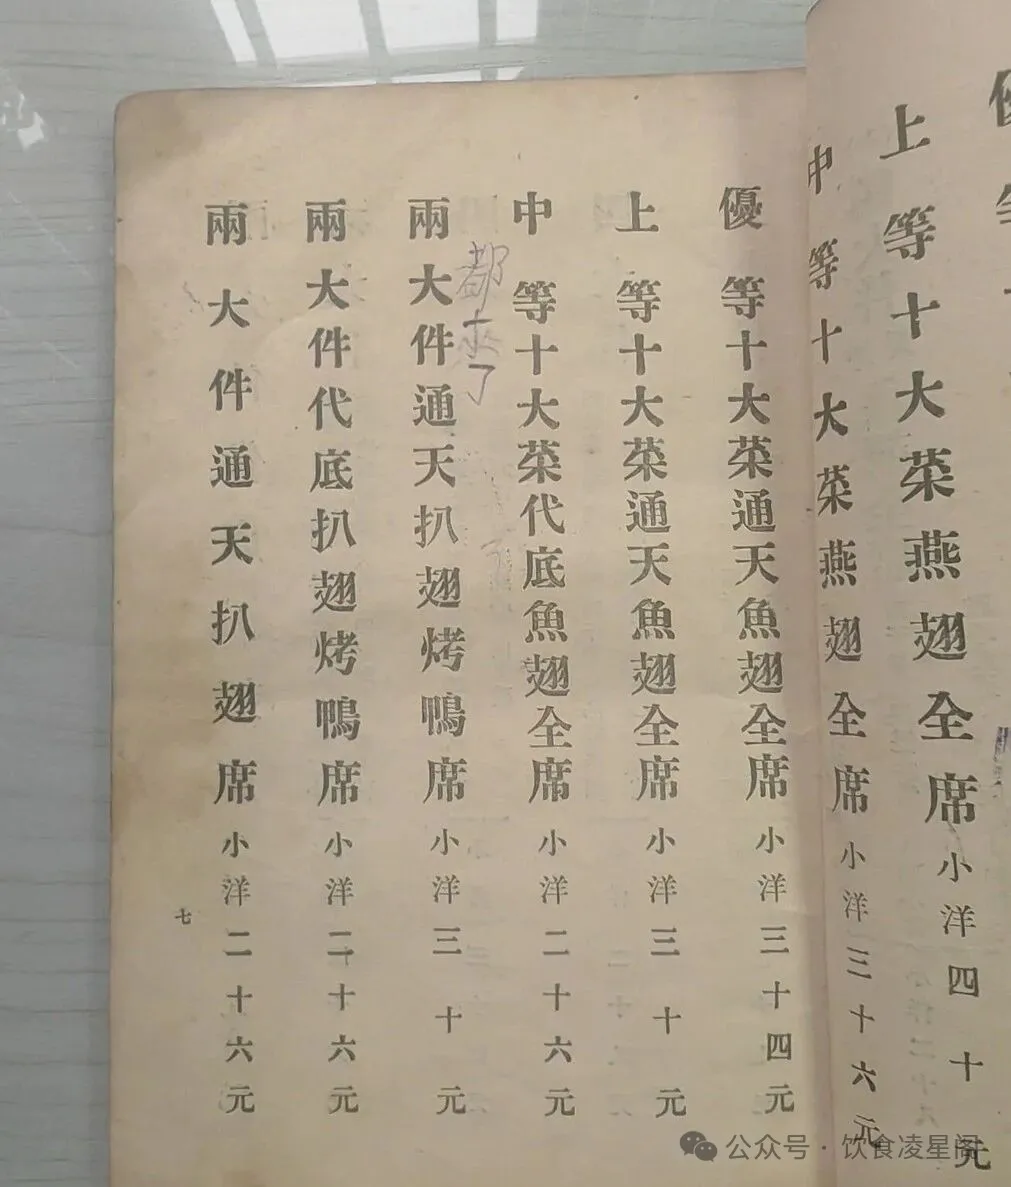 上等十大菜燕翅全席小洋四十元
中等十大菜燕翅全席小洋三十六元
優等十大菜通天魚翅全席小洋三十四元
上等十大菜通天魚翅全席小洋三十元
中等十大菜代底魚翅全席小洋二十六元
都來了
兩大件通天扒翅烤鴨席小洋三十元
兩大件代底扒翅烤鴨席小洋二十六元
兩大件通天扒翅席小洋二十六元
七
公众号·饮食凌星阁